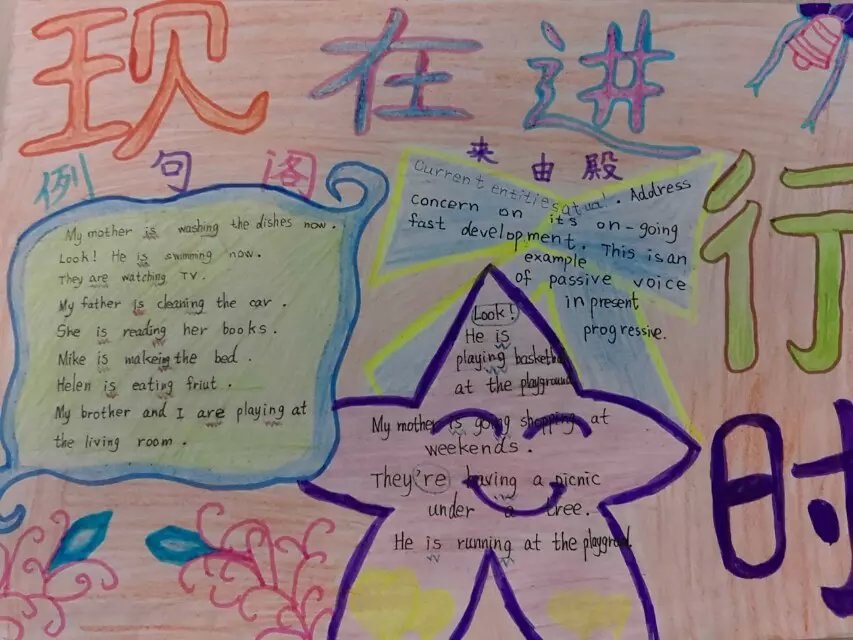 现在进
行
时
例句阁
My mother is washing the dishes now.
Look! He is swimming now.
They are watching TV.
My father is cleaning the car.
She is reading her books.
Mike is makeing the bed.
Helen is eating friut.
My brother and I are playing at
the living room.
来由殿
Current entities atual. Address
concern on it's on-going
fast development. This is an
example
of passive voice
in present
progressive.
Look!
He is
playing basketba
at the playground
My mother is going shopping at
weekends.
They're having a picnic
under a tree.
He is running at the playground.